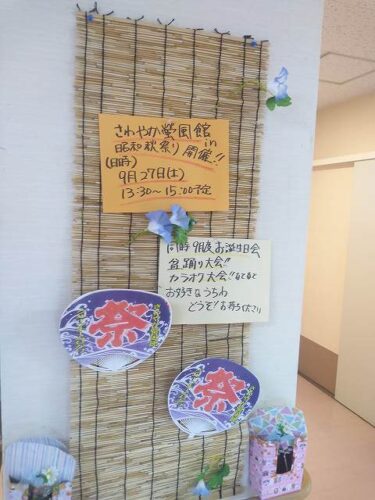 さわやか螢風館in
昭和秋祭り 開催!!
(日時)
9月27日(土)
13:30〜15:00予定
同時 9月度お誕生日会
盆踊り大会!!
カラオケ大会!!
お好きなうちわ
どうぞ!お持ちください
祭
祭